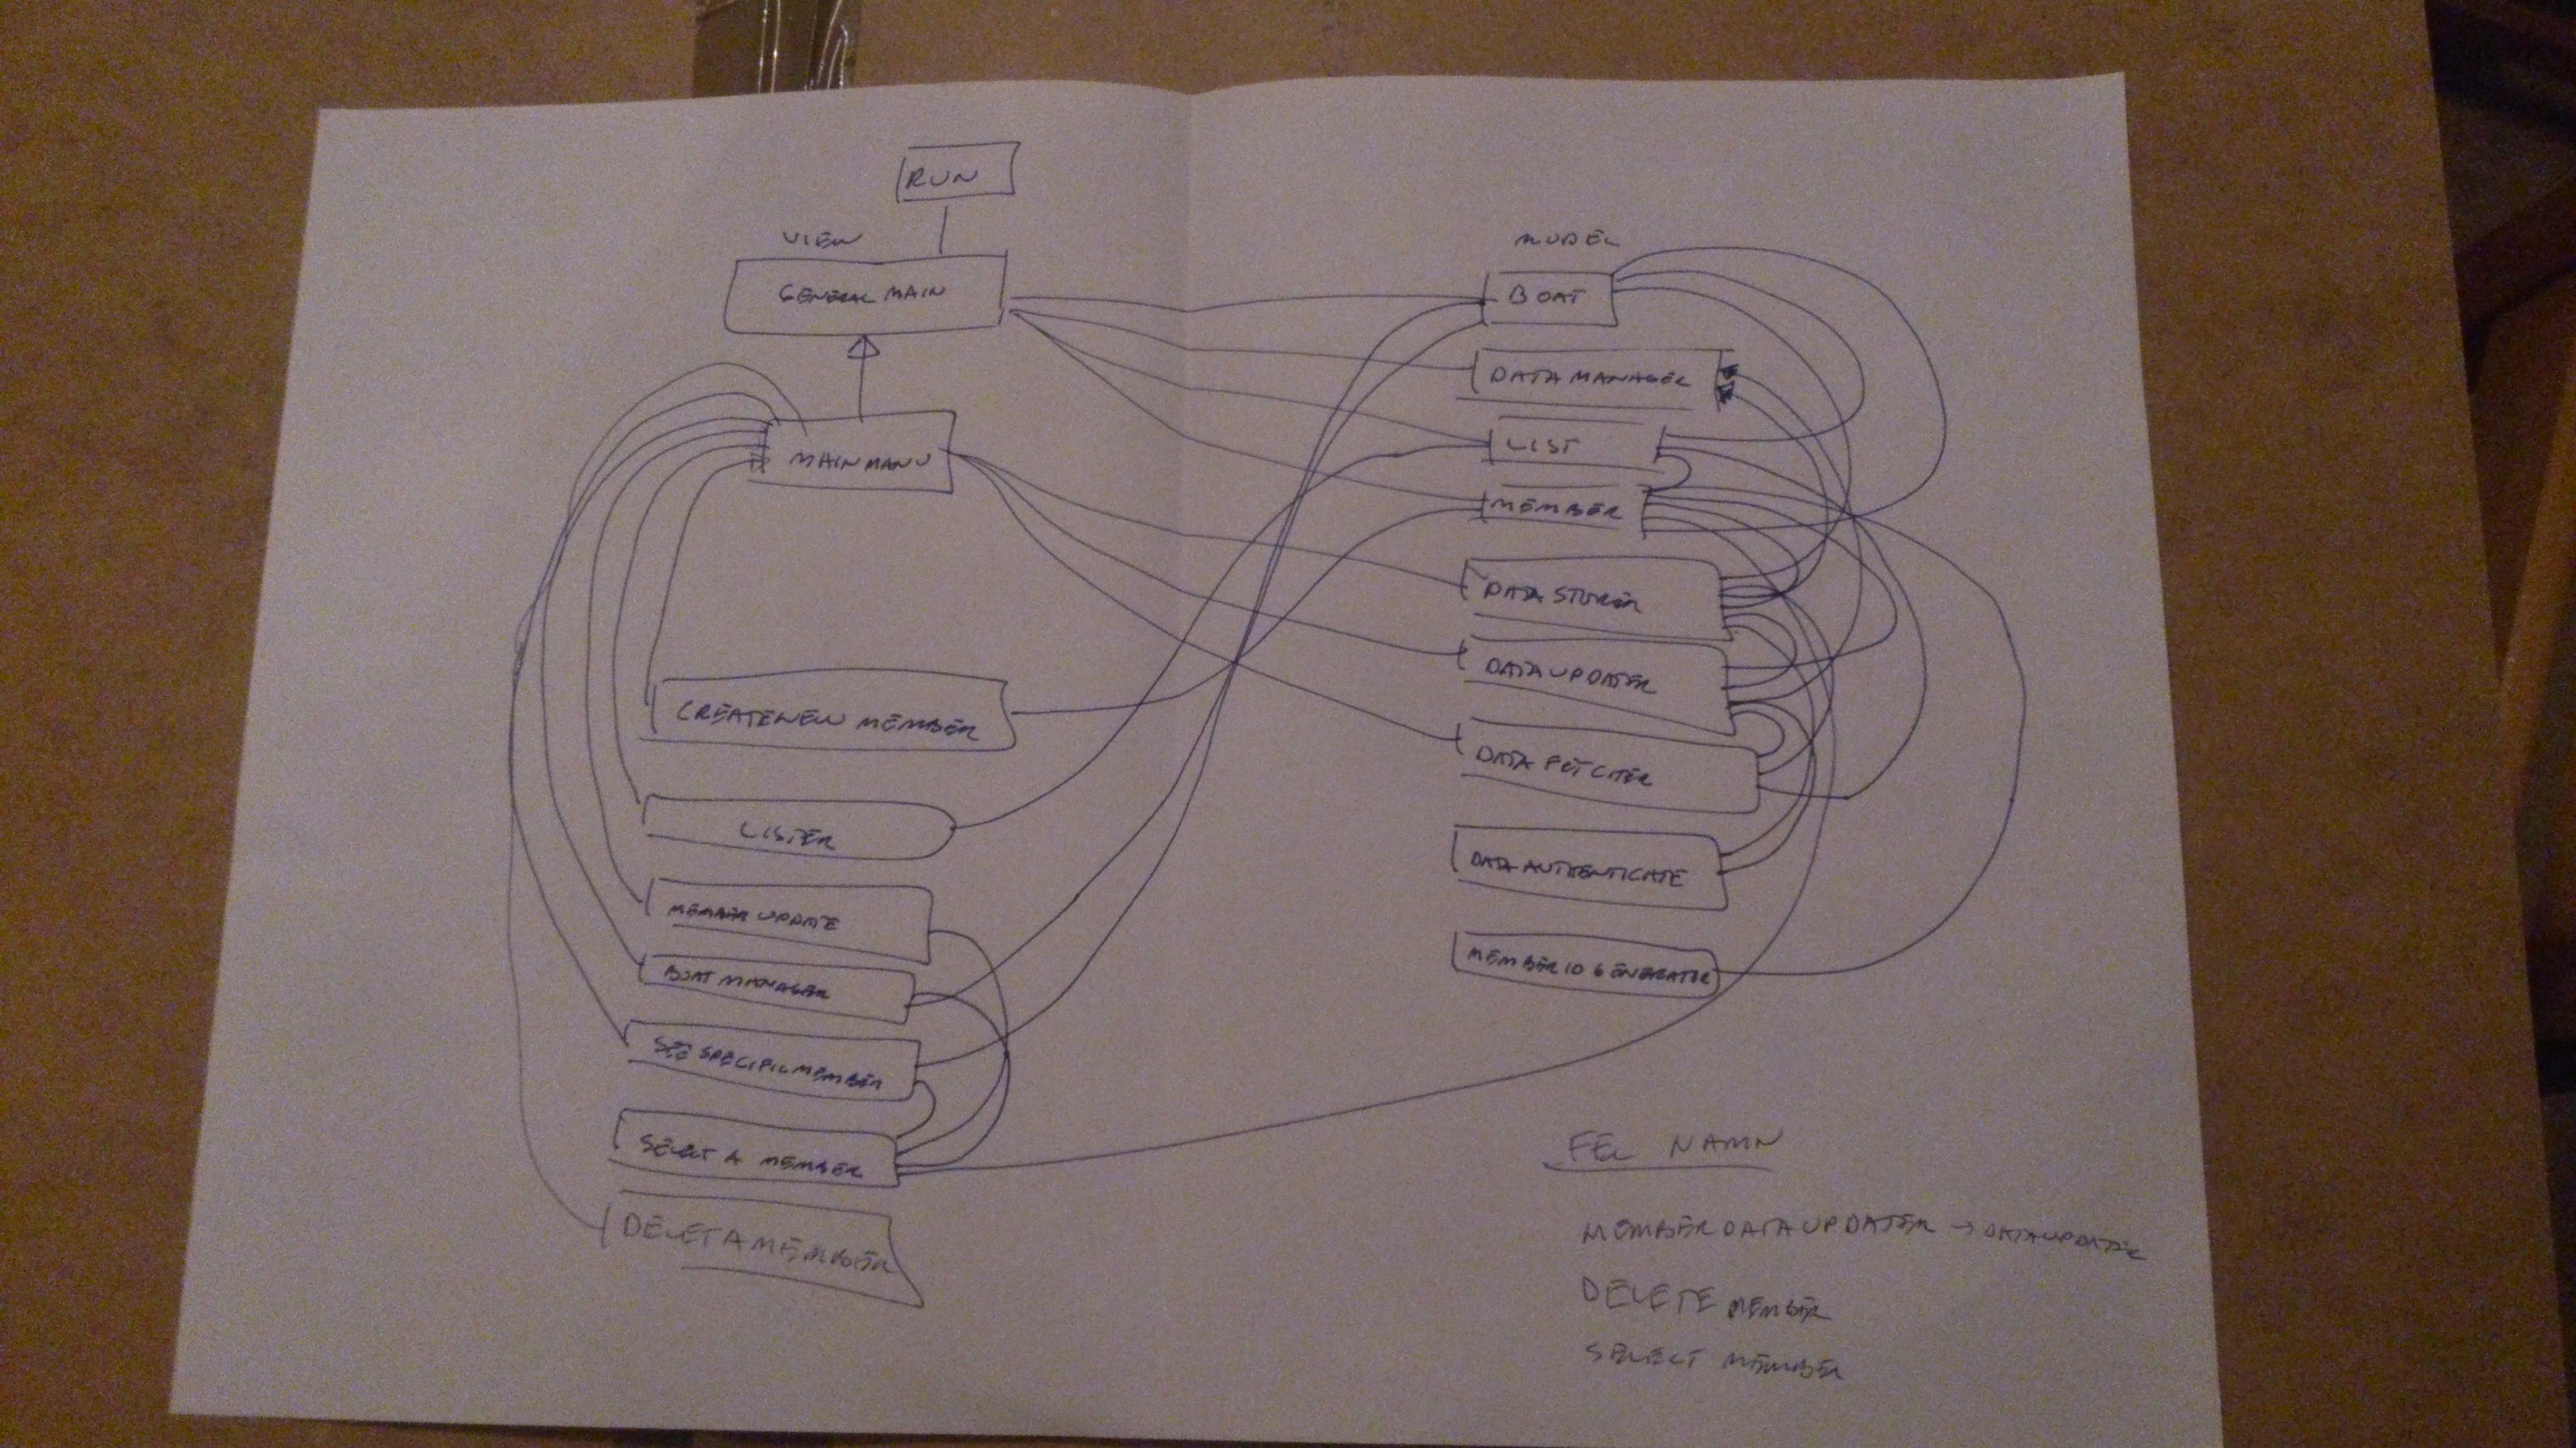 RUN
VIEW
GENERAL MAIN
MAINMANU
CREATENEW MEMBER
LISTER
MEMBER UPDATE
BOAT MANAGER
SEE SPECIFIC MEMBER
SELECT A MEMBER
DELETAMEMBER
MODEL
BOAT
DATA MANAGER
LIST
MEMBER
DATA STORER
DATA UPDATER
DATA FETCHER
DATA AUTHENTICATE
MEMBER ID GENERATOR
FEL NAMN
MEMBERDATAUPDATER → DATAUPDATER
DELETE MEMBER
SELECT MEMBER